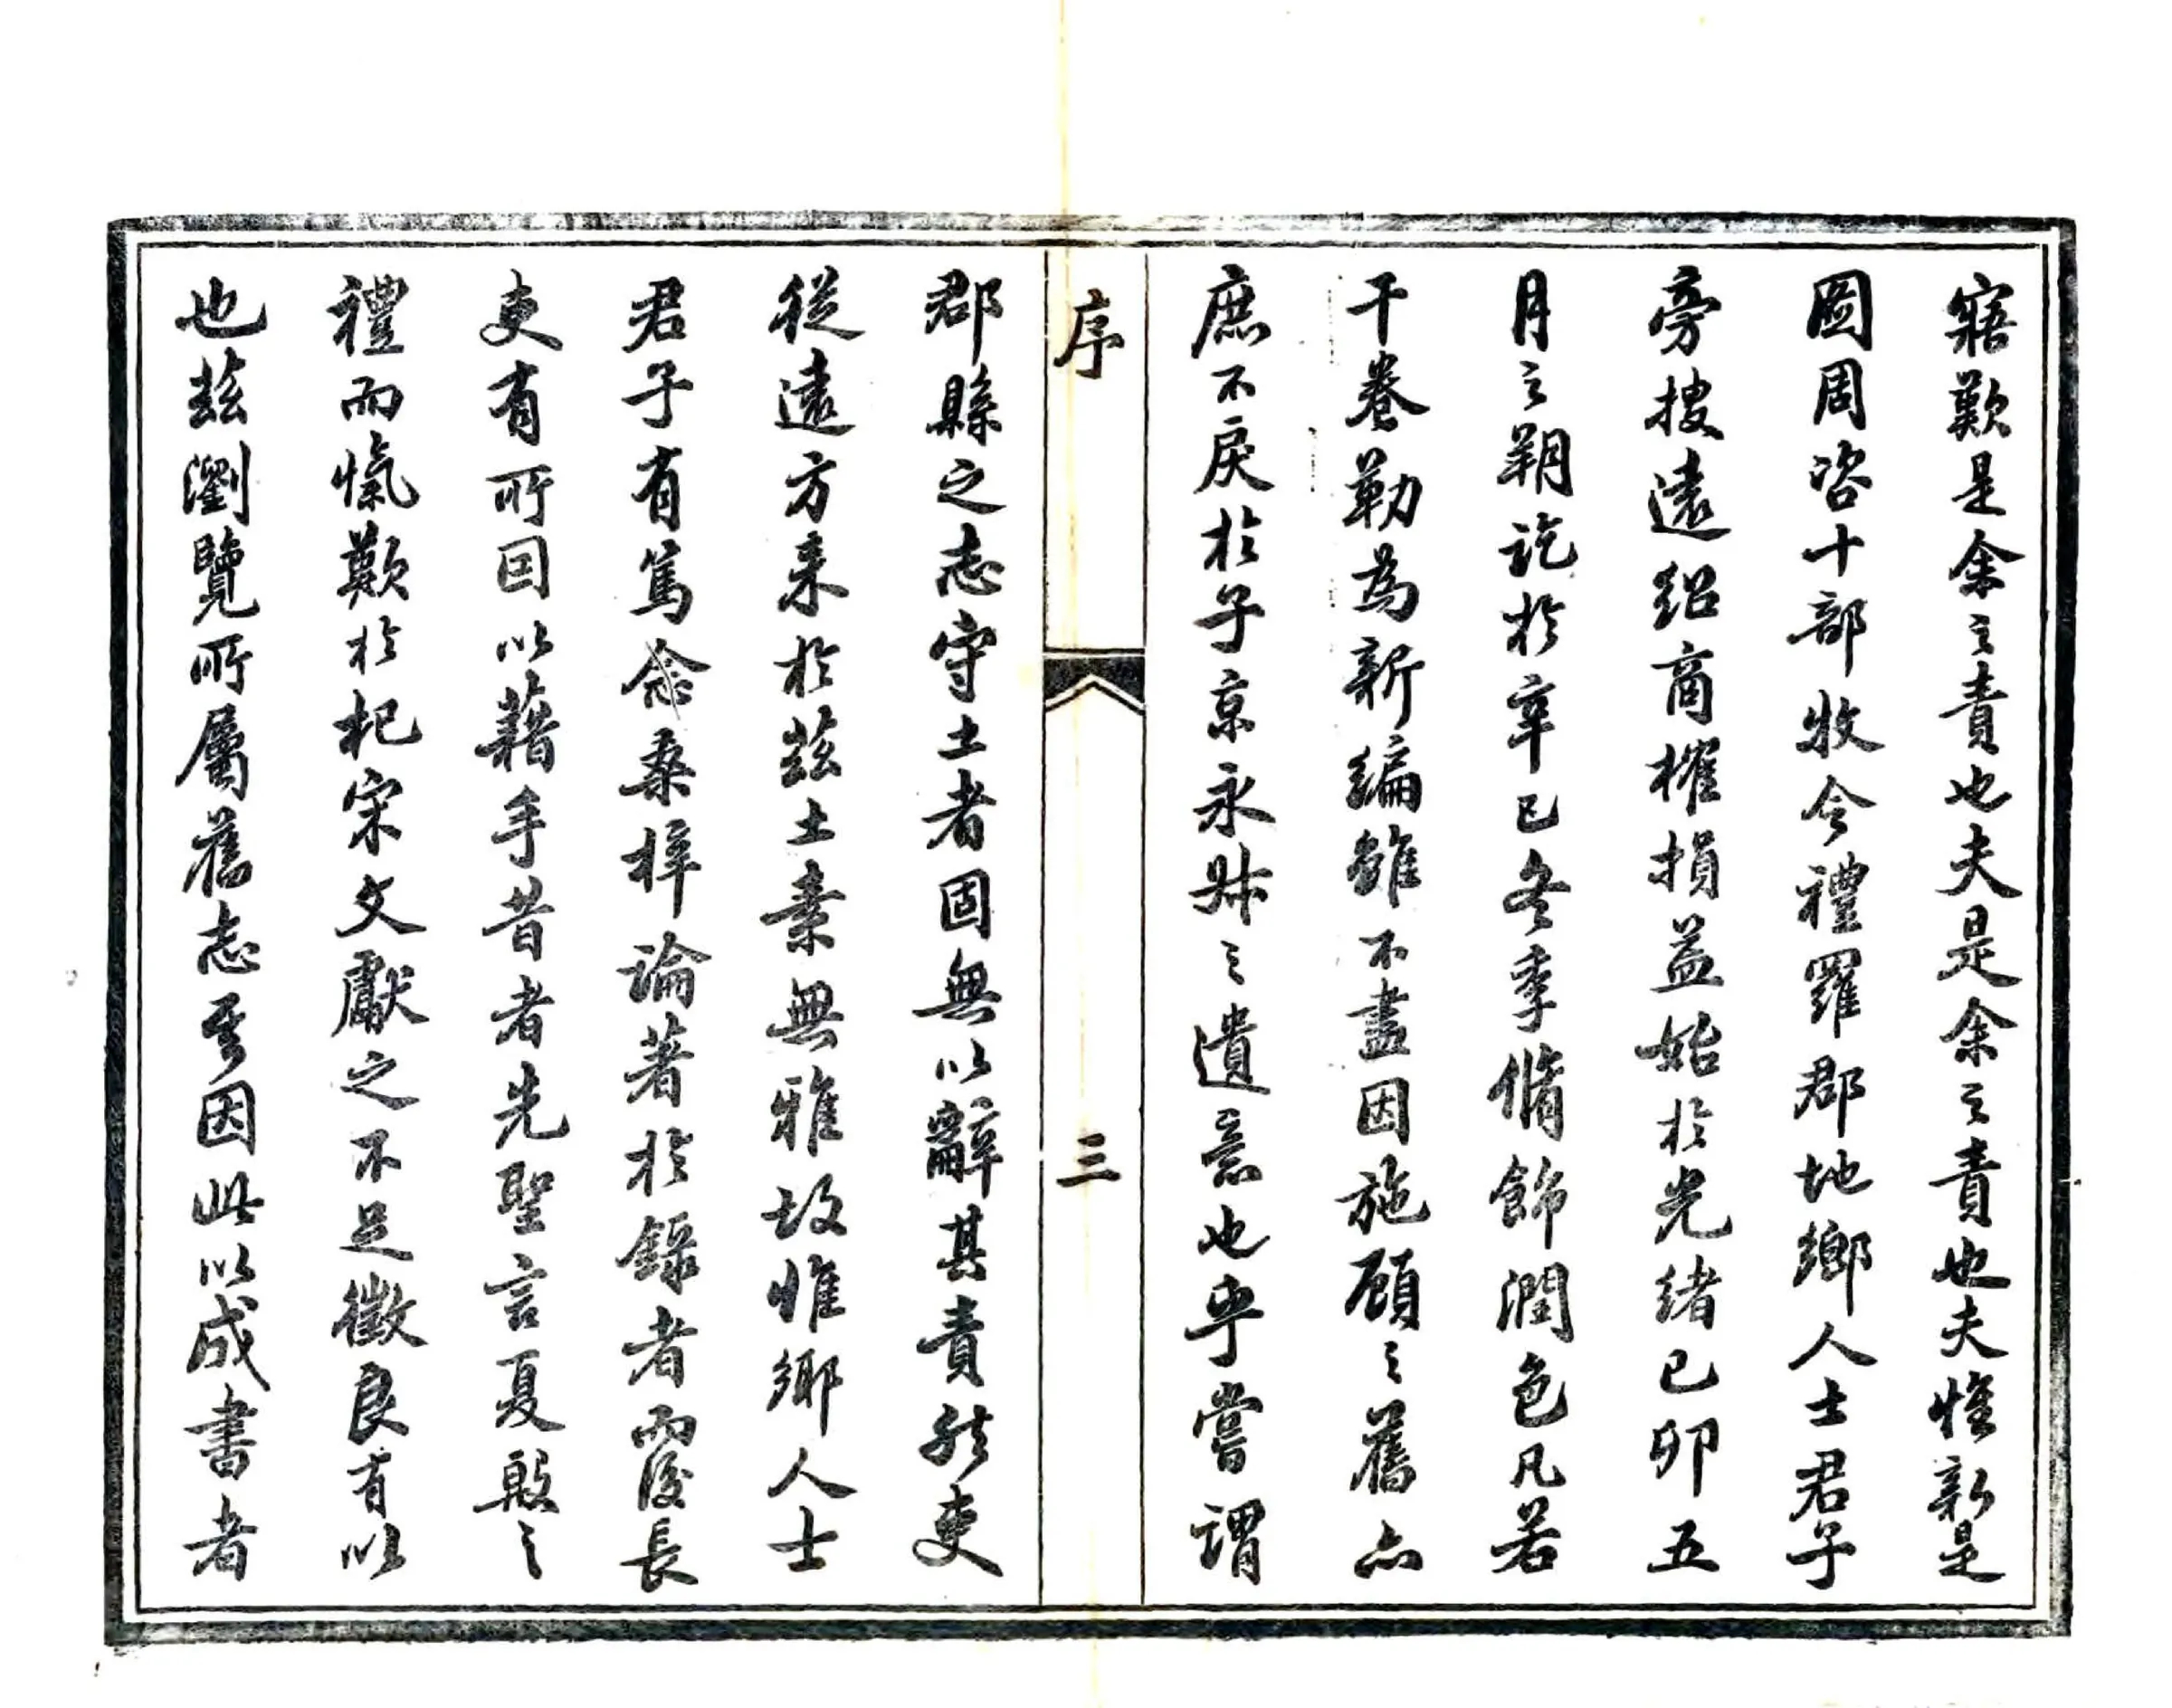 寤歎是余之責也夫是余之責也夫惟新是
圖周咨十部牧令禮羅郡地鄉人士君子
旁搜遠紹商榷損益始於光緒己卯五
月之朔訖於辛巳冬季脩飾潤色凡若
干卷勒為新編雖不盡因施顧之舊亦
庶不戾於子京永叔之遺意也乎嘗謂
序
三
郡縣之志守土者固無以辭其責然吏
從遠方来於茲土素無雅故惟鄉人士
君子有篤念桑梓論著於錄者而後長
吏有所因以藉手昔者先聖言夏殷之
禮而慨歎於杞宋文獻之不足徵良有以
也茲瀏覽所屬舊志其因此以成書者